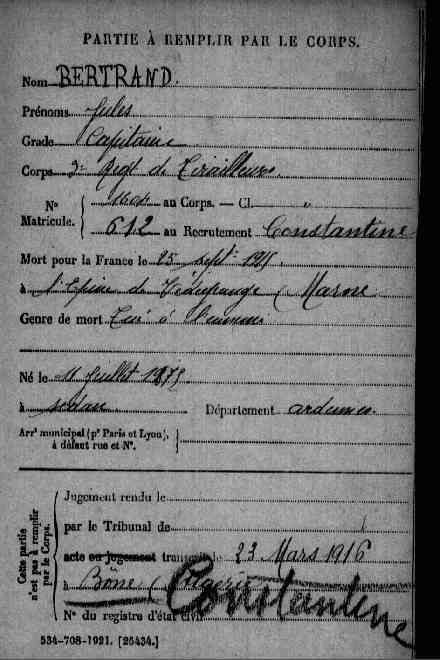 PARTIE À REMPLIR PAR LE CORPS.
Nom BERTRAND.
Prénoms Jules
Grade Capitaine
Corps 3e Regt de Tirailleurs.
Nº Matricule. { au Corps. — Cl. "
612 au Recrutement Constantine
Mort pour la France le 25 septre 1915.
à l'Epine de (Marne
Genre de mort Tué à l'ennemi
Né le 11 Juillet 1875
à sedan Département ardennes.
Arrt municipal (pr Paris et Lyon),
à défaut rue et Nº.
Cette partie
n'est pas à remplir
par le Corps.
Jugement rendu le
par le Tribunal de
acte ou jugement transcrit le 23 Mars 1916
à Bone (Algérie
Constantine
Nº du registre d'état civil
534-708-1921. [26434.]